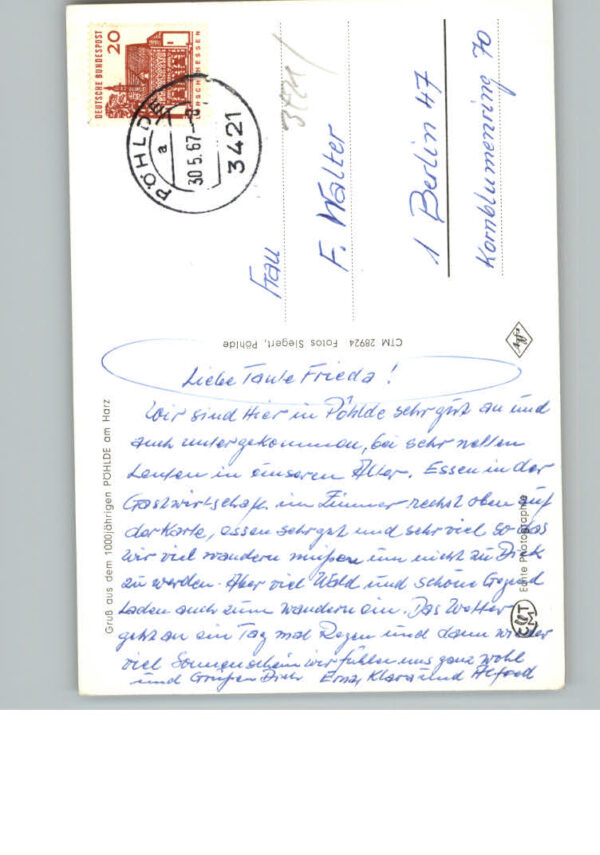 DEUTSCHE BUNDESPOST
20
LORSCH HESSEN
PÖHLDE
a
30.5.67
3421
Frau
F. Walter
1 Berlin 47
Kornblumenring 70
CTM 28924 Fotos Siegert, Pöhlde
Gruß aus dem 1000jährigen PÖHLDE am Harz
Echte Photographie
Liebe Tante Frieda!
Wir sind Hier in Pöhlde sehr gut an und
auch untergekommen, bei sehr netten
Leuten in unseren Alter. Essen in der
Gastwirtschaft im Zimmer rechst oben auf
der Karte, essen sehr gut und sehr viel so das
wir viel wandern müßen um nicht zu Dick
zu werden. Aber viel Wald und schöne Gegend
laden auch zum wandern ein. Das Wetter
geht an ein Tag mal Regen und dann wieder
viel Sonnenschein wir fühlen uns ganz wohl
und Grüßen Dich Erna, Klara und Alfred